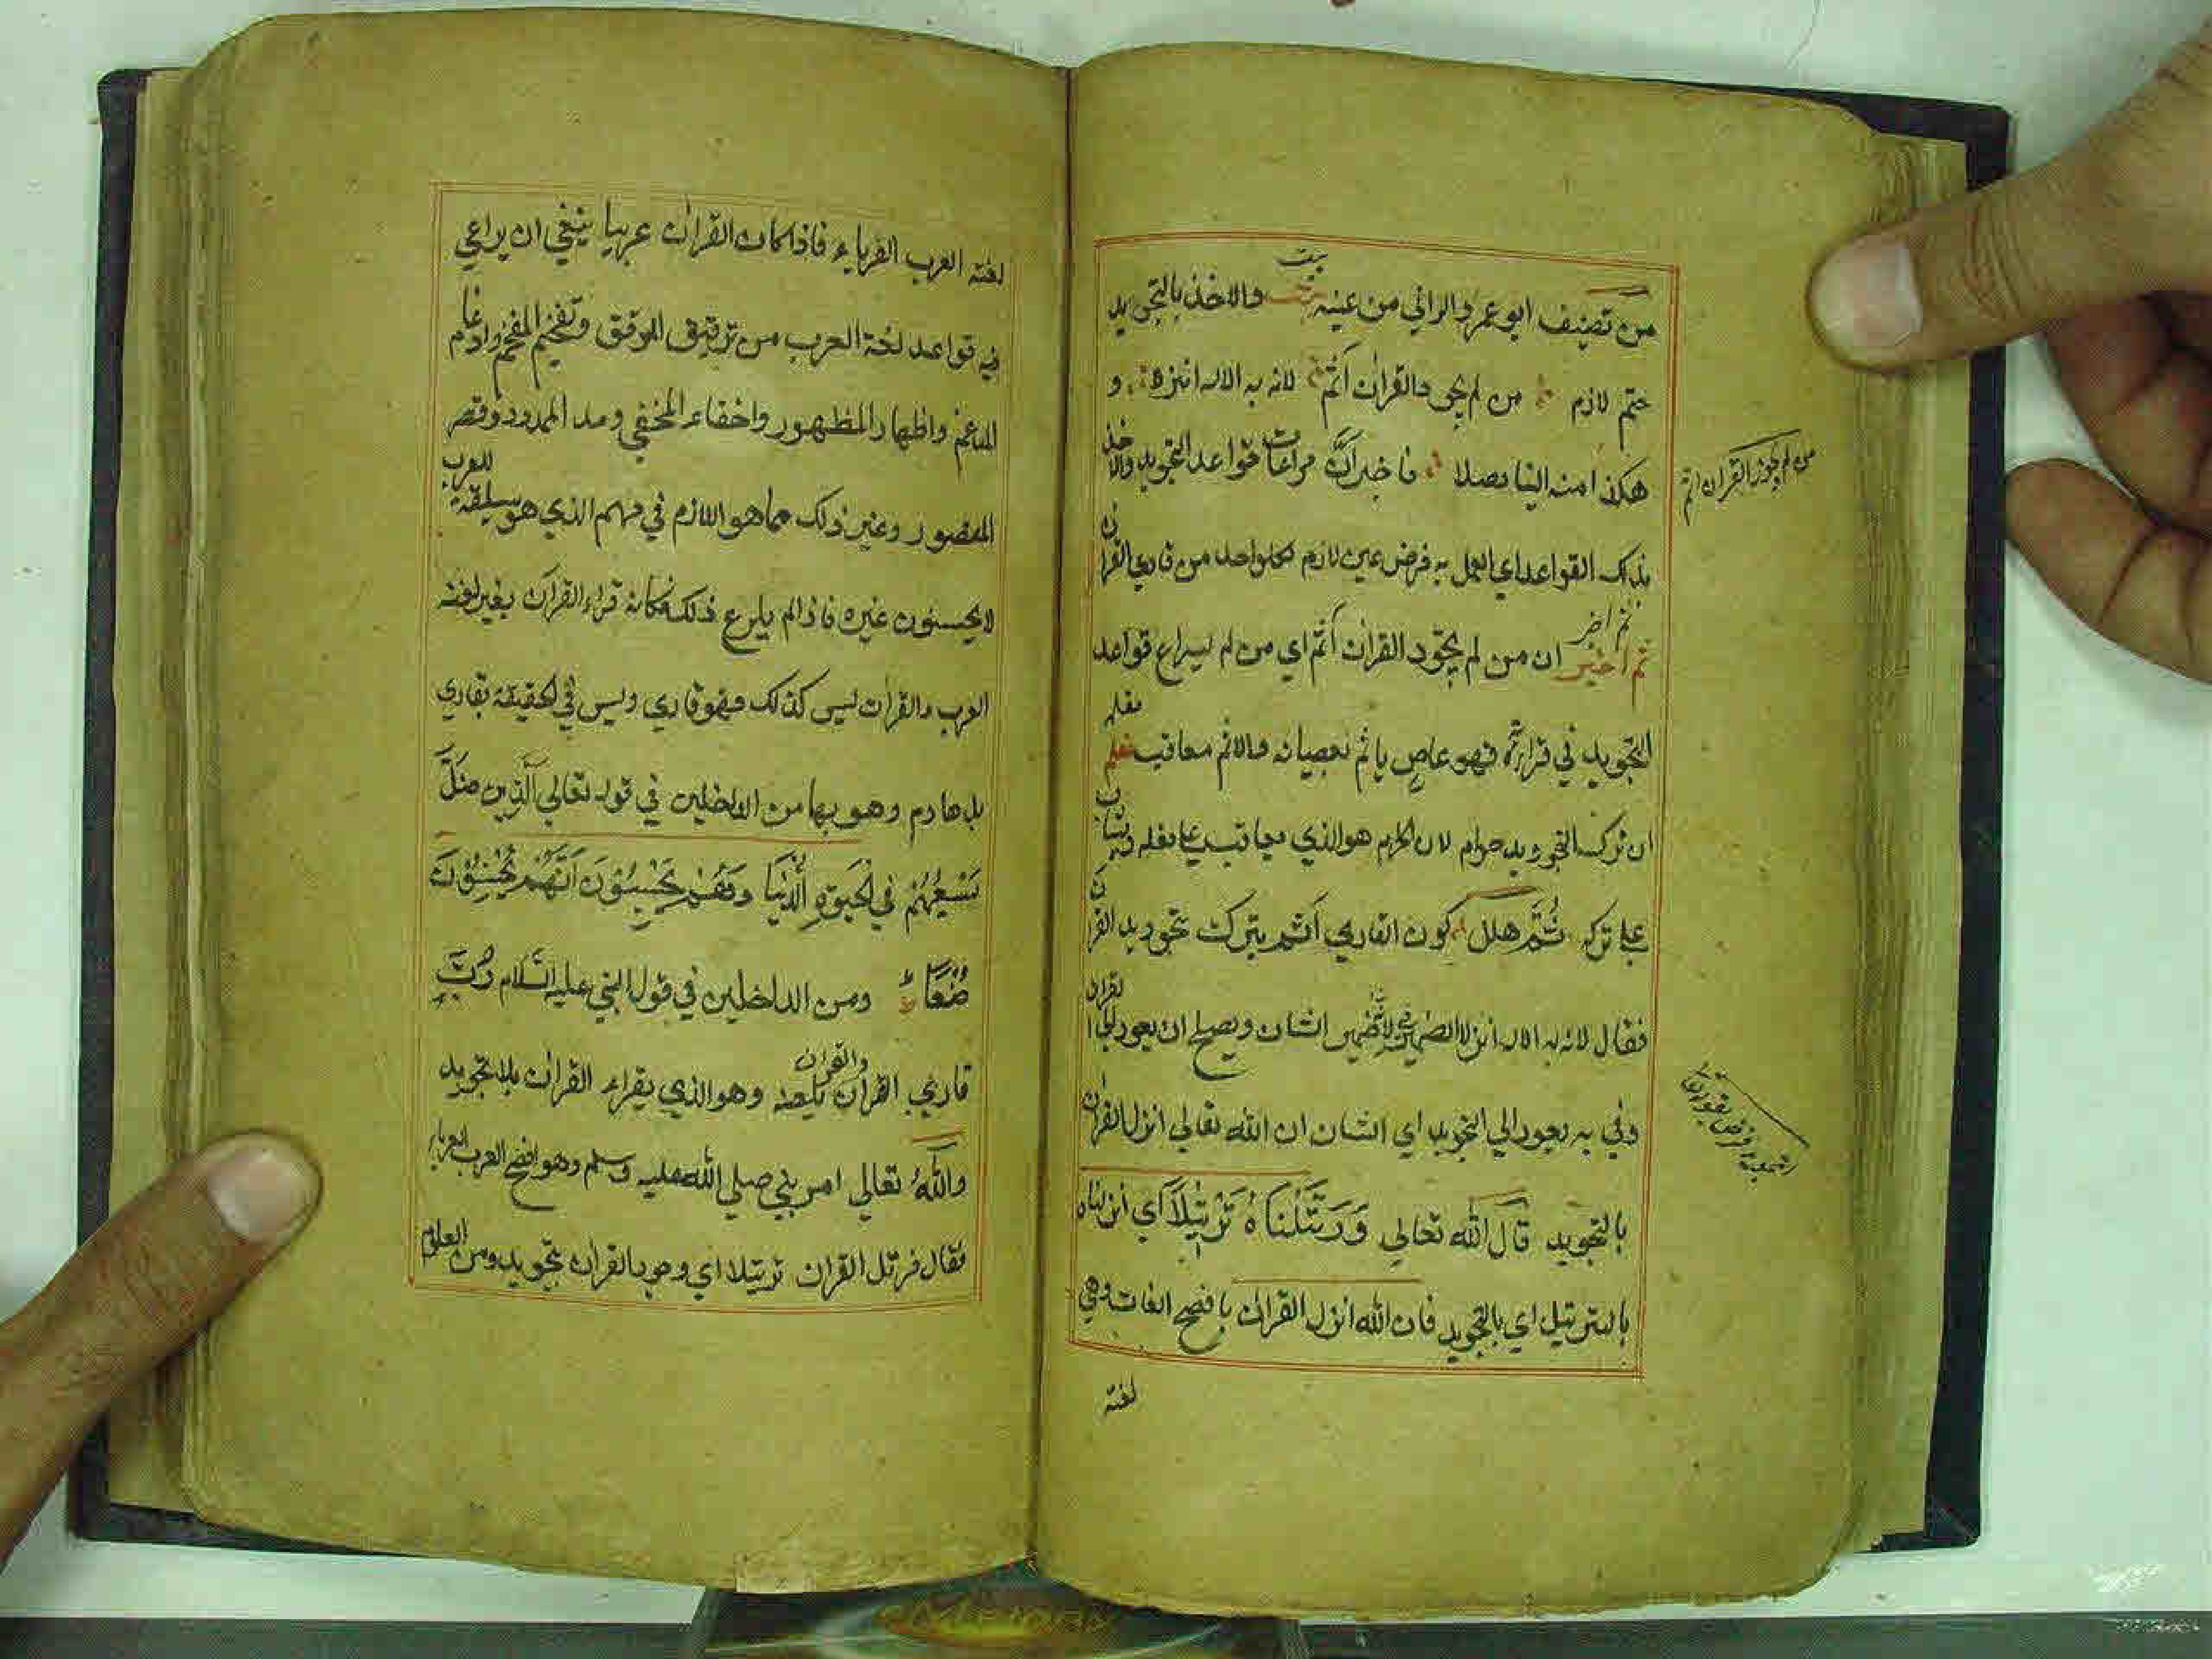 من تصنيف ابو عمر والراني من عينه بيت والاخذ بالتجويد
حتم لازم من لم يجود القران أثم لانه به الاله انزلا و
هكذا منه الينا وصلا فاخبر ان مراعات قواعد التجويد والاخذ
بذلك القواعد اي العمل به فرض عين لازم لكل واحد من قاري القران
ثم اخبر
ثم اخبر ان من لم يجود القران أثم اي من لم يراع قواعد
التجويد في قراءته فهو عاص ياثم بعصيانه والاثم معاقب فعلم
ان ترك التجويد حرام لان الحرام هو الذي يعاقب على فعله ويثاب
على تركه ثم علل كون القاري أثم بترك تجويد القران
فقال لانه به الاله انزلا الضمير في لانه ضمير الشان ويصلح ان يعود الى القران
وفي به يعود الى التجويد اي الشان ان الله تعالي انزل القران
بالتجويد قال الله تعالي وَرَتَّلْنَاهُ تَرْتِيْلاً اي انزلناه
بالترتيل اي بالتجويد فان الله انزل القران بافصح اللغات وهي
لغة
من لم يجود القران اثم
لغة العرب العرباء فاذا كان القران عربيا ينبغي ان يراعي
فيه قواعد لغة العرب من ترقيق المرقق وتفخيم المفخم وادغام
المدغم واظهار المظهور واخفاء المخفي ومد الممدود وقصر
المقصور وغير ذلك مما هو اللازم في فهم الذي هو سليقة للعرب
لا يحسنون غيره فاذا لم يراع ذلك فكانه قراء القران بغير لغة
العرب والقران ليس كذلك فهو قاري وليس في الحقيقة بقاري
بل هادم وهو بها من الداخلين في قوله تعالي الَّذِين ضَلَّ
سَعْيُهُمْ فِي الْحَيَوةِ الدُّنْيَا وَهُمْ يَحْسَبُوْنَ اَنَّهُمْ يُحْسِنُوْنَ
صُنْعًا ومن الداخلين في قول النبي عليه السلام رُبَّ
قاري القران والقران يلعنه وهو الذي يقراء القران بلا تجويد
والله تعالي امر نبي صلي الله عليه وسلم وهو افصح العرب العرباء
فقال فرتل القران ترتيلا اي وجود القران بتجويد ومن العلوم